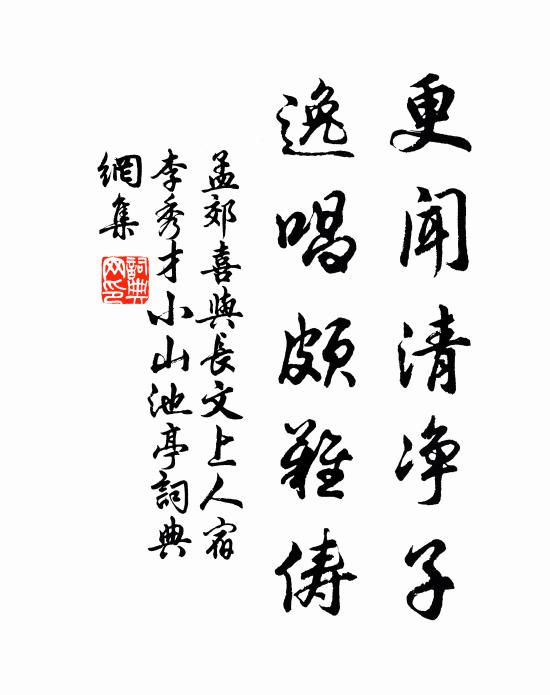 更闻清净子
逸唱颇難俦
孟郊喜與長文上人宿
李秀才小山池亭詞典
網集
詞典
网印